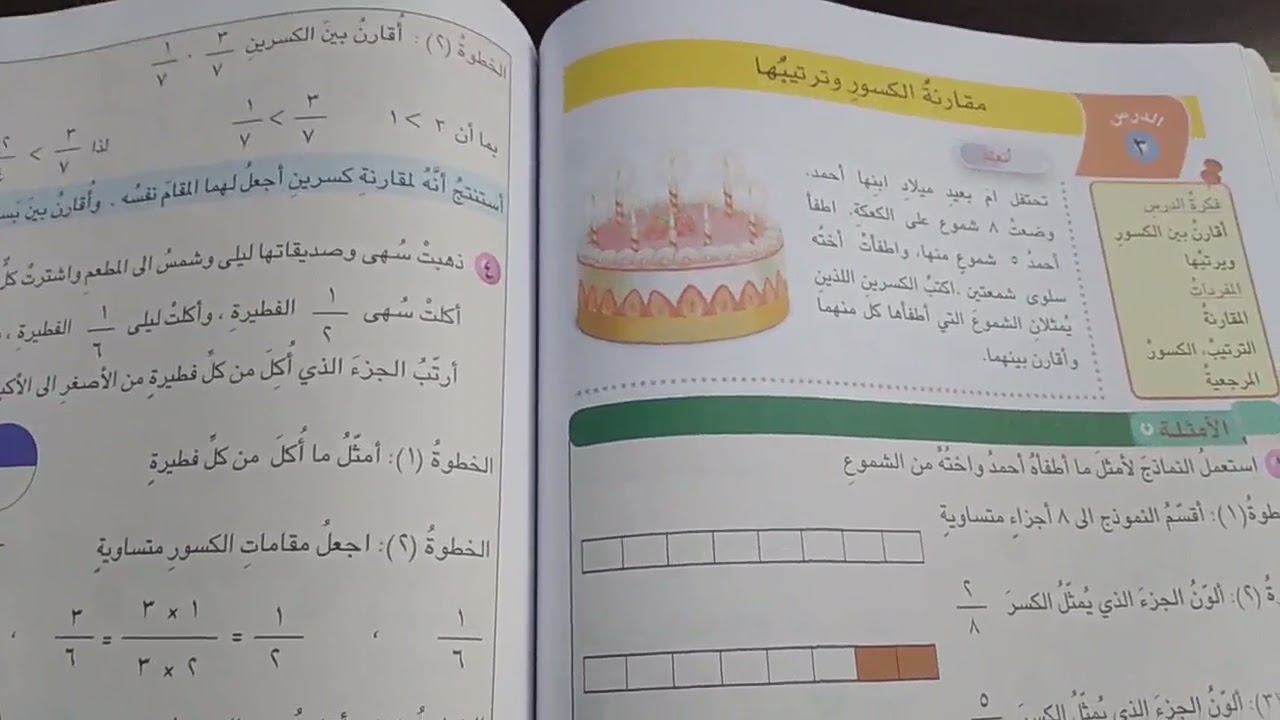 الدرس
٣
مقارنةُ الكسورِ وترتيبُها
فكرةُ الدرسِ
أقارنُ بين الكسورِ
ويرتبُها
المفرداتُ
المقارنةُ
الترتيبُ، الكسورُ
المرجعيةُ
أتعلم
تحتفل أم بعيدِ ميلادِ ابنِها أحمد،
وضعتْ ٨ شموع على الكعكة. اطفأ
أحمدُ ٥ شموعٍ منها، واطفأتْ أختُه
سلوى شمعتين .اكتبُ الكسرينِ اللذين
يُمثلانِ الشموعَ التي أطفأها كل منهما
وأقارن بينهما.
الأمثلة
استعملُ النماذجَ لأمثلَ ما أطفأهُ أحمدُ واختُهُ من الشموعِ
(١): أقسّمُ النموذج الى ٨ أجزاءٍ متساويةٍ
(٢): ألوّنُ الجزءَ الذي يُمثّلُ الكسرَ ٢/٨
ألوّنُ الجزءَ الذي يُمثّلُ الكسرَ ٥
الخطوةُ (٢): أقارنُ بينَ الكسرينِ ٣/٧ ، ١/٧
بما أن ٣ > ١ ٣/٧ > ١/٧ لذا ٣/٧ >
أستنتجُ أنَّهُ لمقارنةِ كسرينِ أجعلُ لهما المقامَ نفسُه . وأُقارنُ بينَ
٤ ذهبتْ سُهى وصديقاتها ليلى وشمسُ الى المطعمِ واشترتْ كلُّ
أكلتْ سُهى ١/٢ الفطيرةِ ، وأكلتْ ليلى ١/٦ الفطيرةِ ،
أرتّبُ الجزءَ الذي أُكِلَ من كلِّ فطيرةٍ من الأصغرِ الى
الخطوةُ (١): أمثّلُ ما أُكلَ من كلِّ فطيرةٍ
الخطوةُ (٢): اجعلُ مقاماتِ الكسورِ متساويةٍ
١/٦ ، ١/٢ = ١ × ٣/٢ × ٣ = ٣/٦ ،